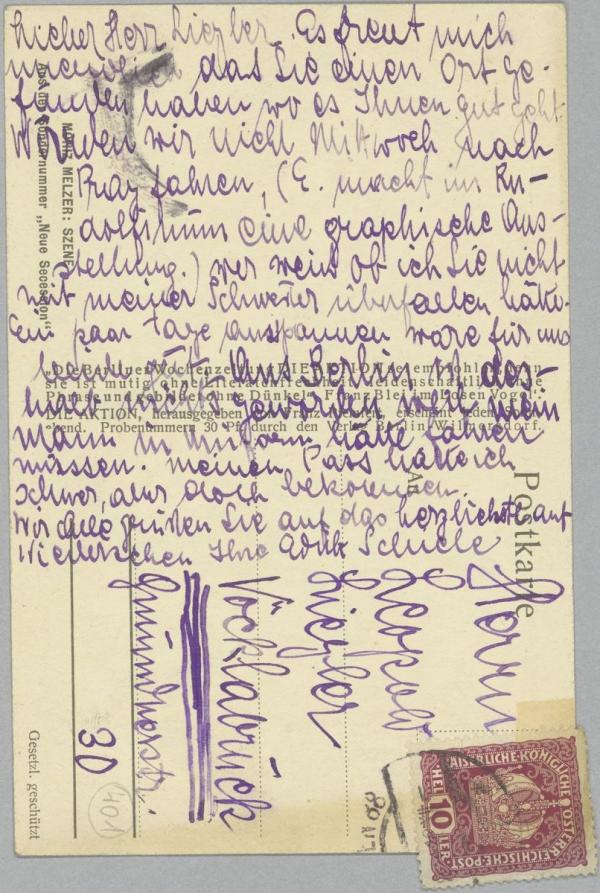 Lieber Herr Liegler. Es freut mich
das Sie einen Ort ge-
funden haben wo es Ihnen gut geht
Würden wir nicht Mittwoch nach
Prag fahren, (E. macht im Ru-
dolfinum eine graphische Aus-
stellung.) wer weis ob ich Sie nicht
mit meiner Schwester überfallen hätte.
Ein paar Tage ausspannen wäre für uns
Aus Berlin ist
mein
Mann in hätte fahren
müssen. meinen Pass hätte ich
schwer, aber doch bekommen.
Wir alle grüßen Sie auf das herzlichste auf
Wiedersehen Ihre Edith Schiele
Postkarte
An
Herrn
Leopold
Liegler
Vöcklabruck
Gmundnerstr.
30
401
MORIZ MELZER: SZENE
Aus der Sondernummer „Neue Secession“
„Die Berliner Wochenzeitung DIE AKTION sei empfohlen, denn
sie ist mutig ohne Literatenfrechheit, leidenschaftlich ohne
Phrase und gebildet ohne Dünkel“ Franz Blei im „Losen Vogel“.
DIE AKTION, herausgegeben von Franz Pfemfert, erscheint jeden Sonn-
abend. Probenummern 30 Pf. durch den Verlag Berlin-Wilmersdorf.
Gesetzl. geschützt
KAISERLICHE KÖNIGLICHE
ÖSTERREICHISCHE POST
10
HELLER